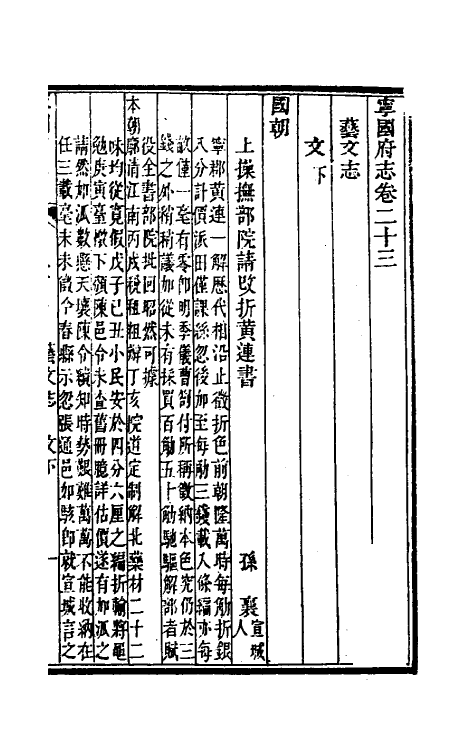 寧國府志卷二十三
藝文志
文下
國朝
上操撫部院請改折黃連書 孫襄宣城人
寧郡黃連一解歷代相沿止徵折色前朝隆萬時每觔折銀
八分計價派田僅課絲忽後加至每觔三錢載入條編亦每
畝僅一毫有零卽明季儀曹劄付所稱徵納本色究仍於三
錢之外稍稍議加從未有採買百觔五十觔馳驅解部者賦
役全書部院批回昭然可據
本朝廓清江南丙戌稅租粗辦丁亥院道定制解北藥材二十二
味均從寬假戊子己丑小民安於四分六厘之編折輸將黽
勉庚寅臺檄下頒陳邑令未查舊冊聽詳估價遂有加派之
請然加派數懸天壤陳令竊知時勢艱難萬萬不能收納在
任三載毫末未徵今春縣示忽張通邑如駭卽就宣城言之
藝文志 文下 一